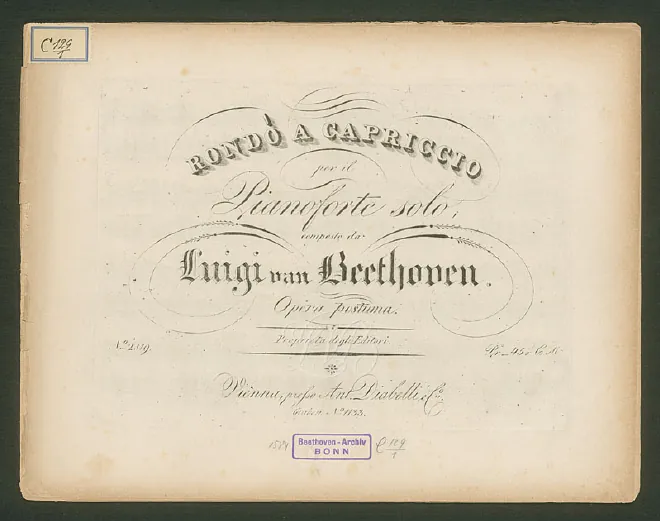 C 129
1
RONDÒ A CAPRICCIO
per il
Pianoforte solo,
composto da
Luigi van Beethoven.
Opera postuma.
Proprietà degli Editori
Vienna, presso Ant. Diabelli e Co.
Graben No. 1133.
Beethoven - Archiv
BONN
C 129
1